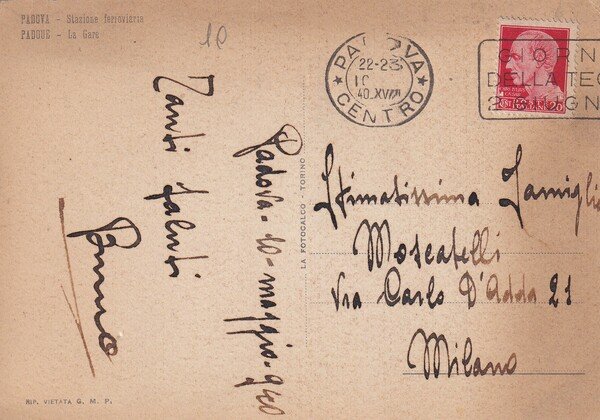 PADOVA - Stazione ferroviaria
PADOUE - La Gare
10
Tanti saluti
Bruno
Padova - 10 - maggio - 940
RIP. VIETATA G. M. P.
LA FOTOCALCO - TORINO
PADOVA
22-23
40.XVIII
CENTRO
GIORN
DELLA TEC
2 GIUGN
Stimatissima Famiglia
Moscatelli
Via Carlo D'Adda 21
Milano